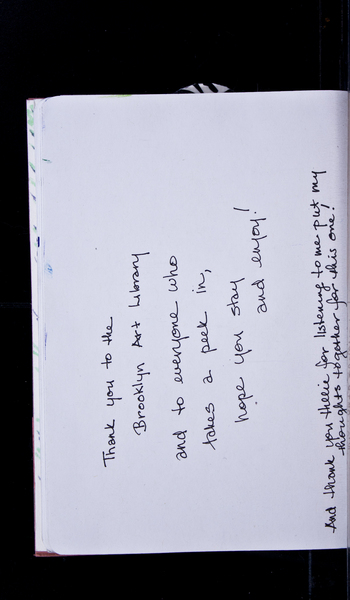 Thank you to the
Brooklyn Art Library
and to everyone who
takes a peek in,
hope you stay
and enjoy!
And thank you for listening to me put my
thoughts together for this one!